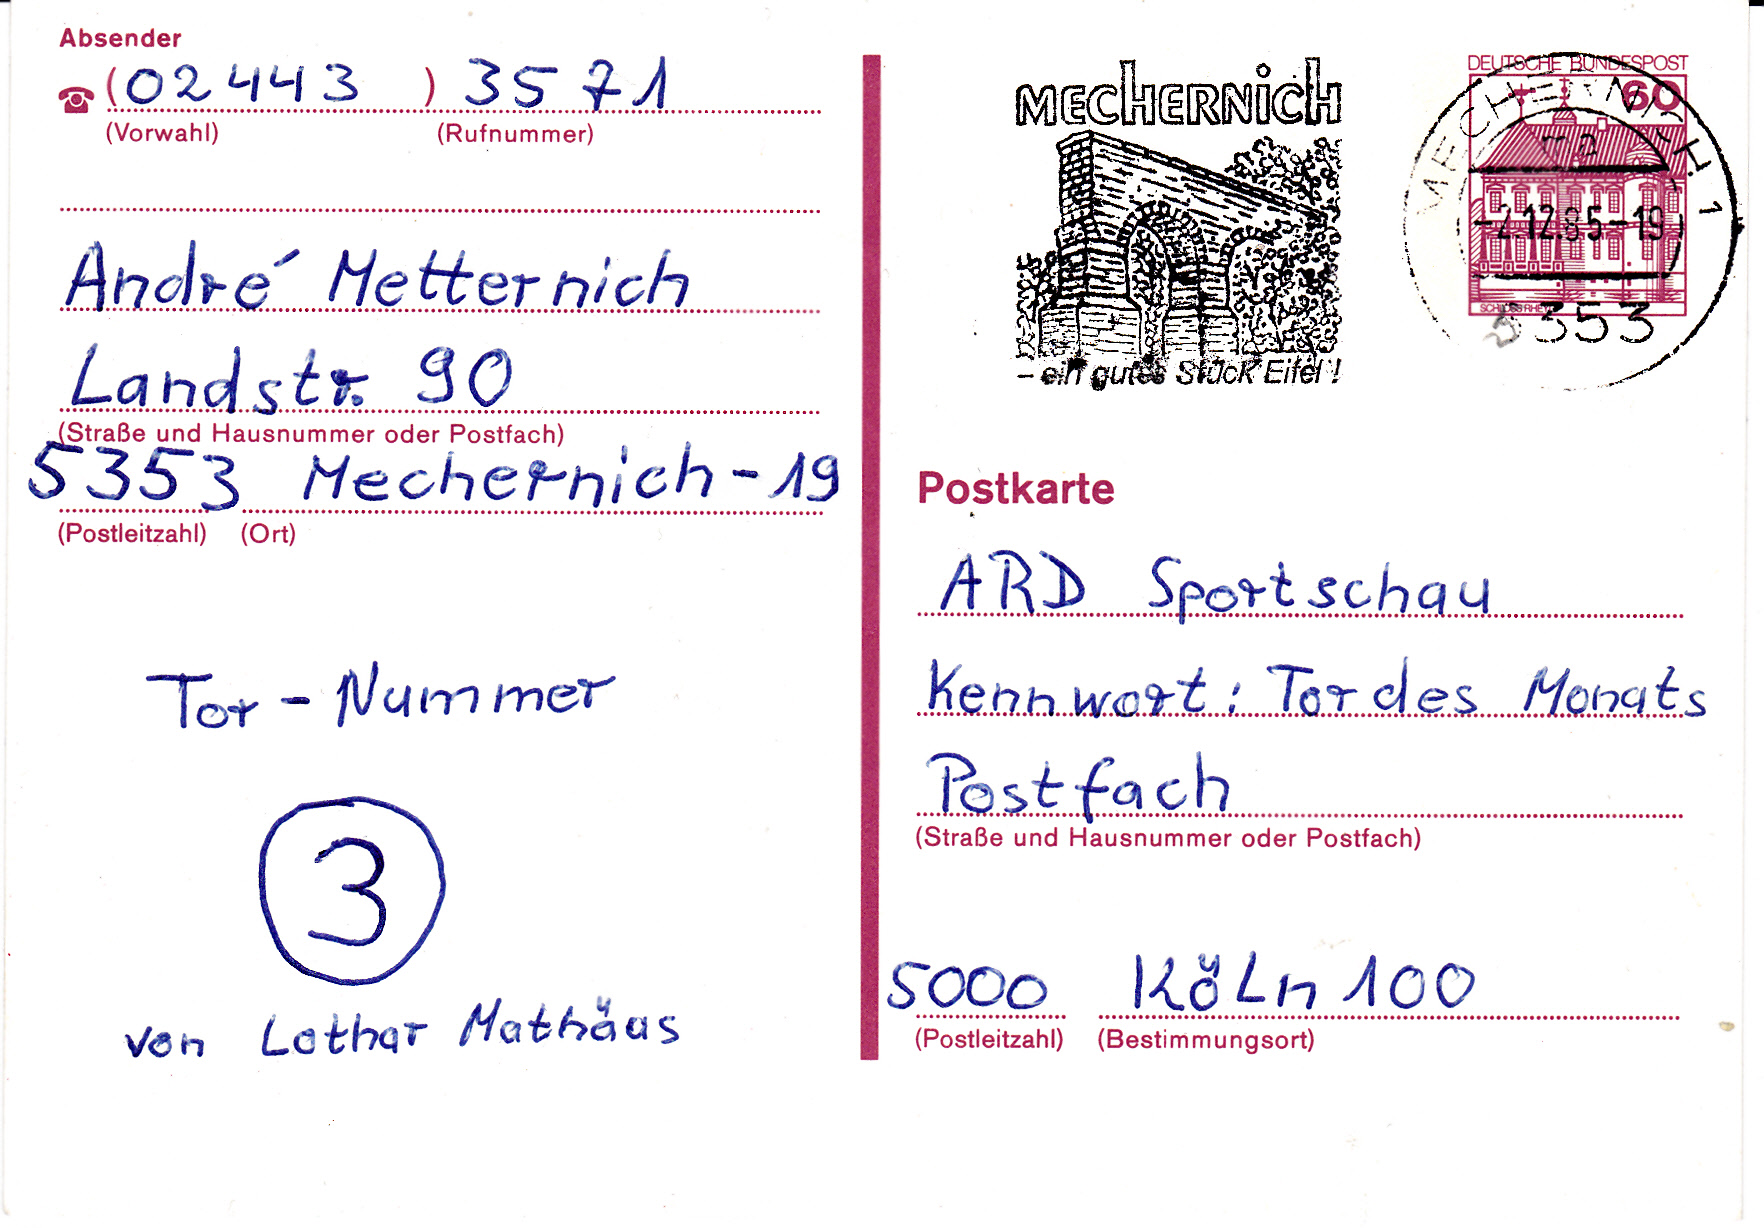 Absender
(02443) 3571
(Vorwahl) (Rufnummer)
André Metternich
Landstr. 90
(Straße und Hausnummer oder Postfach)
5353 Mechernich-19
(Postleitzahl) (Ort)
Tor-Nummer
3
von Lothar Mathäus
MECHERNICH
- ein gutes Stück Eifel!
DEUTSCHE BUNDESPOST
60
SCHLOSS RHEYDT
MECHERNICH 1
ma
-2.12.85-19
5353
Postkarte
ARD Sportschau
Kennwort: Tor des Monats
Postfach
(Straße und Hausnummer oder Postfach)
5000 Köln 100
(Postleitzahl) (Bestimmungsort)